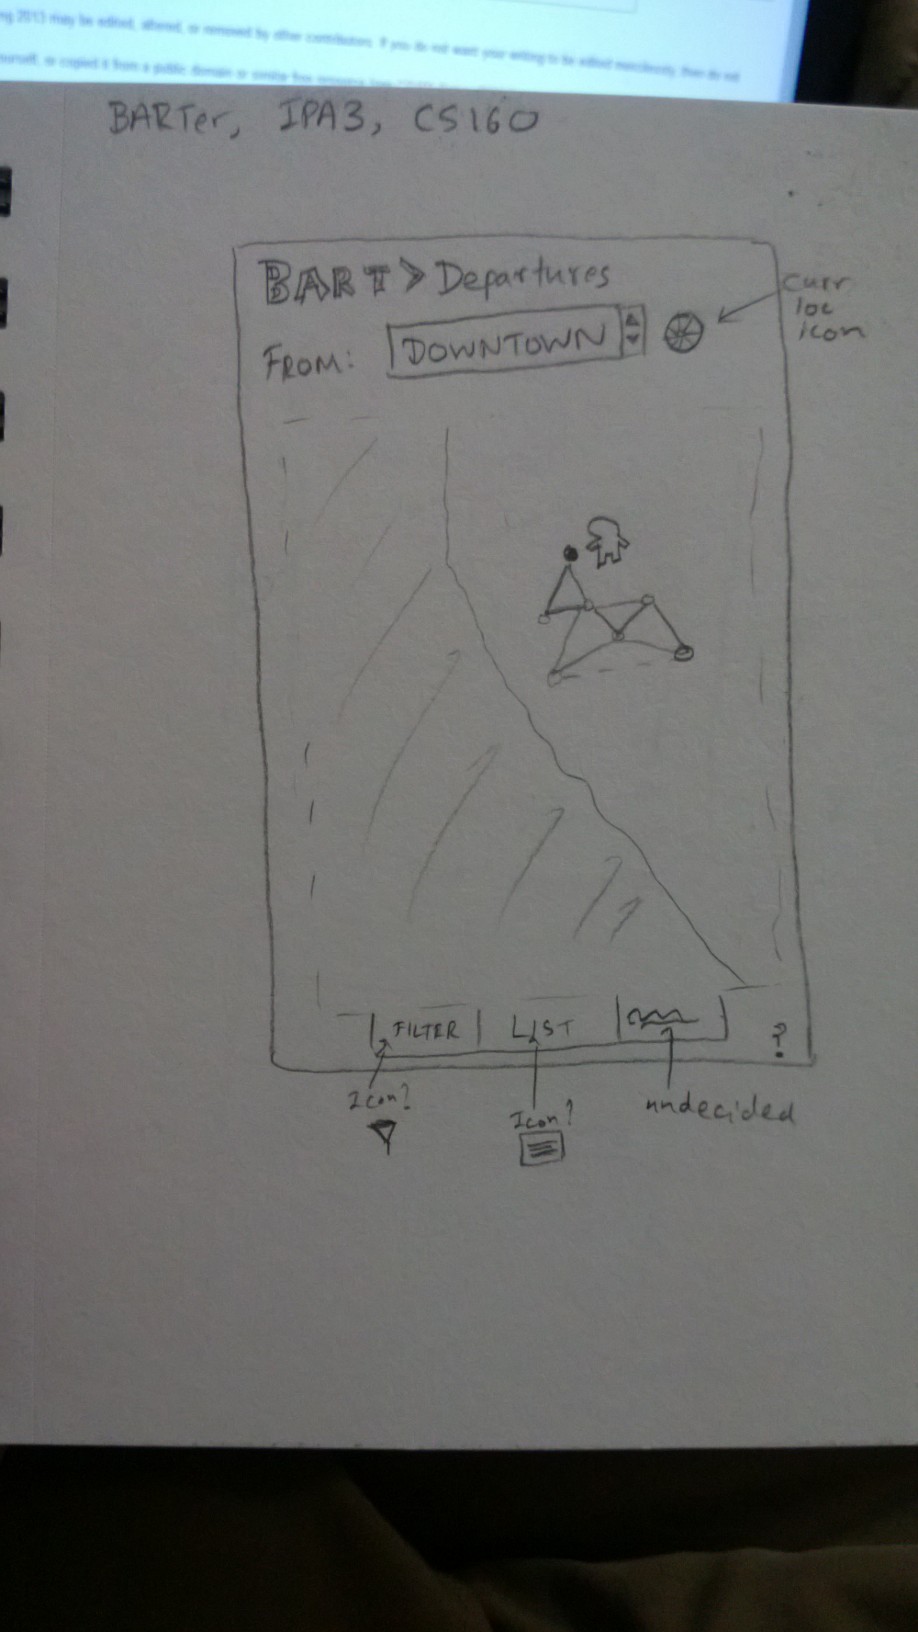 ng 2013 may be edited, altered, or removed by other contributors. If you do not want your writing to be edited mercilessly, then do not
ourself, or copied it from a public domain or similar free resource
BARTer, IPA3, CS160
BART > Departures
curr
loc
icon
FROM: DOWNTOWN
FILTER LIST
?
Icon?
Icon?
undecided